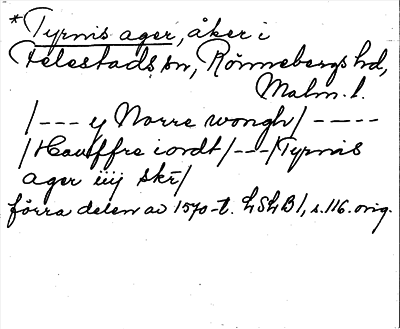 *Tyrnis ager, åker i
Felestads sn, Rönnebergs hd,
Malm. l.
/--- y Norre wongh/ -----
/Hauffre iordt/---/Tyrnis
ager iiij skr/
förra delen av 1570-t. LShB1, s. 116. orig.